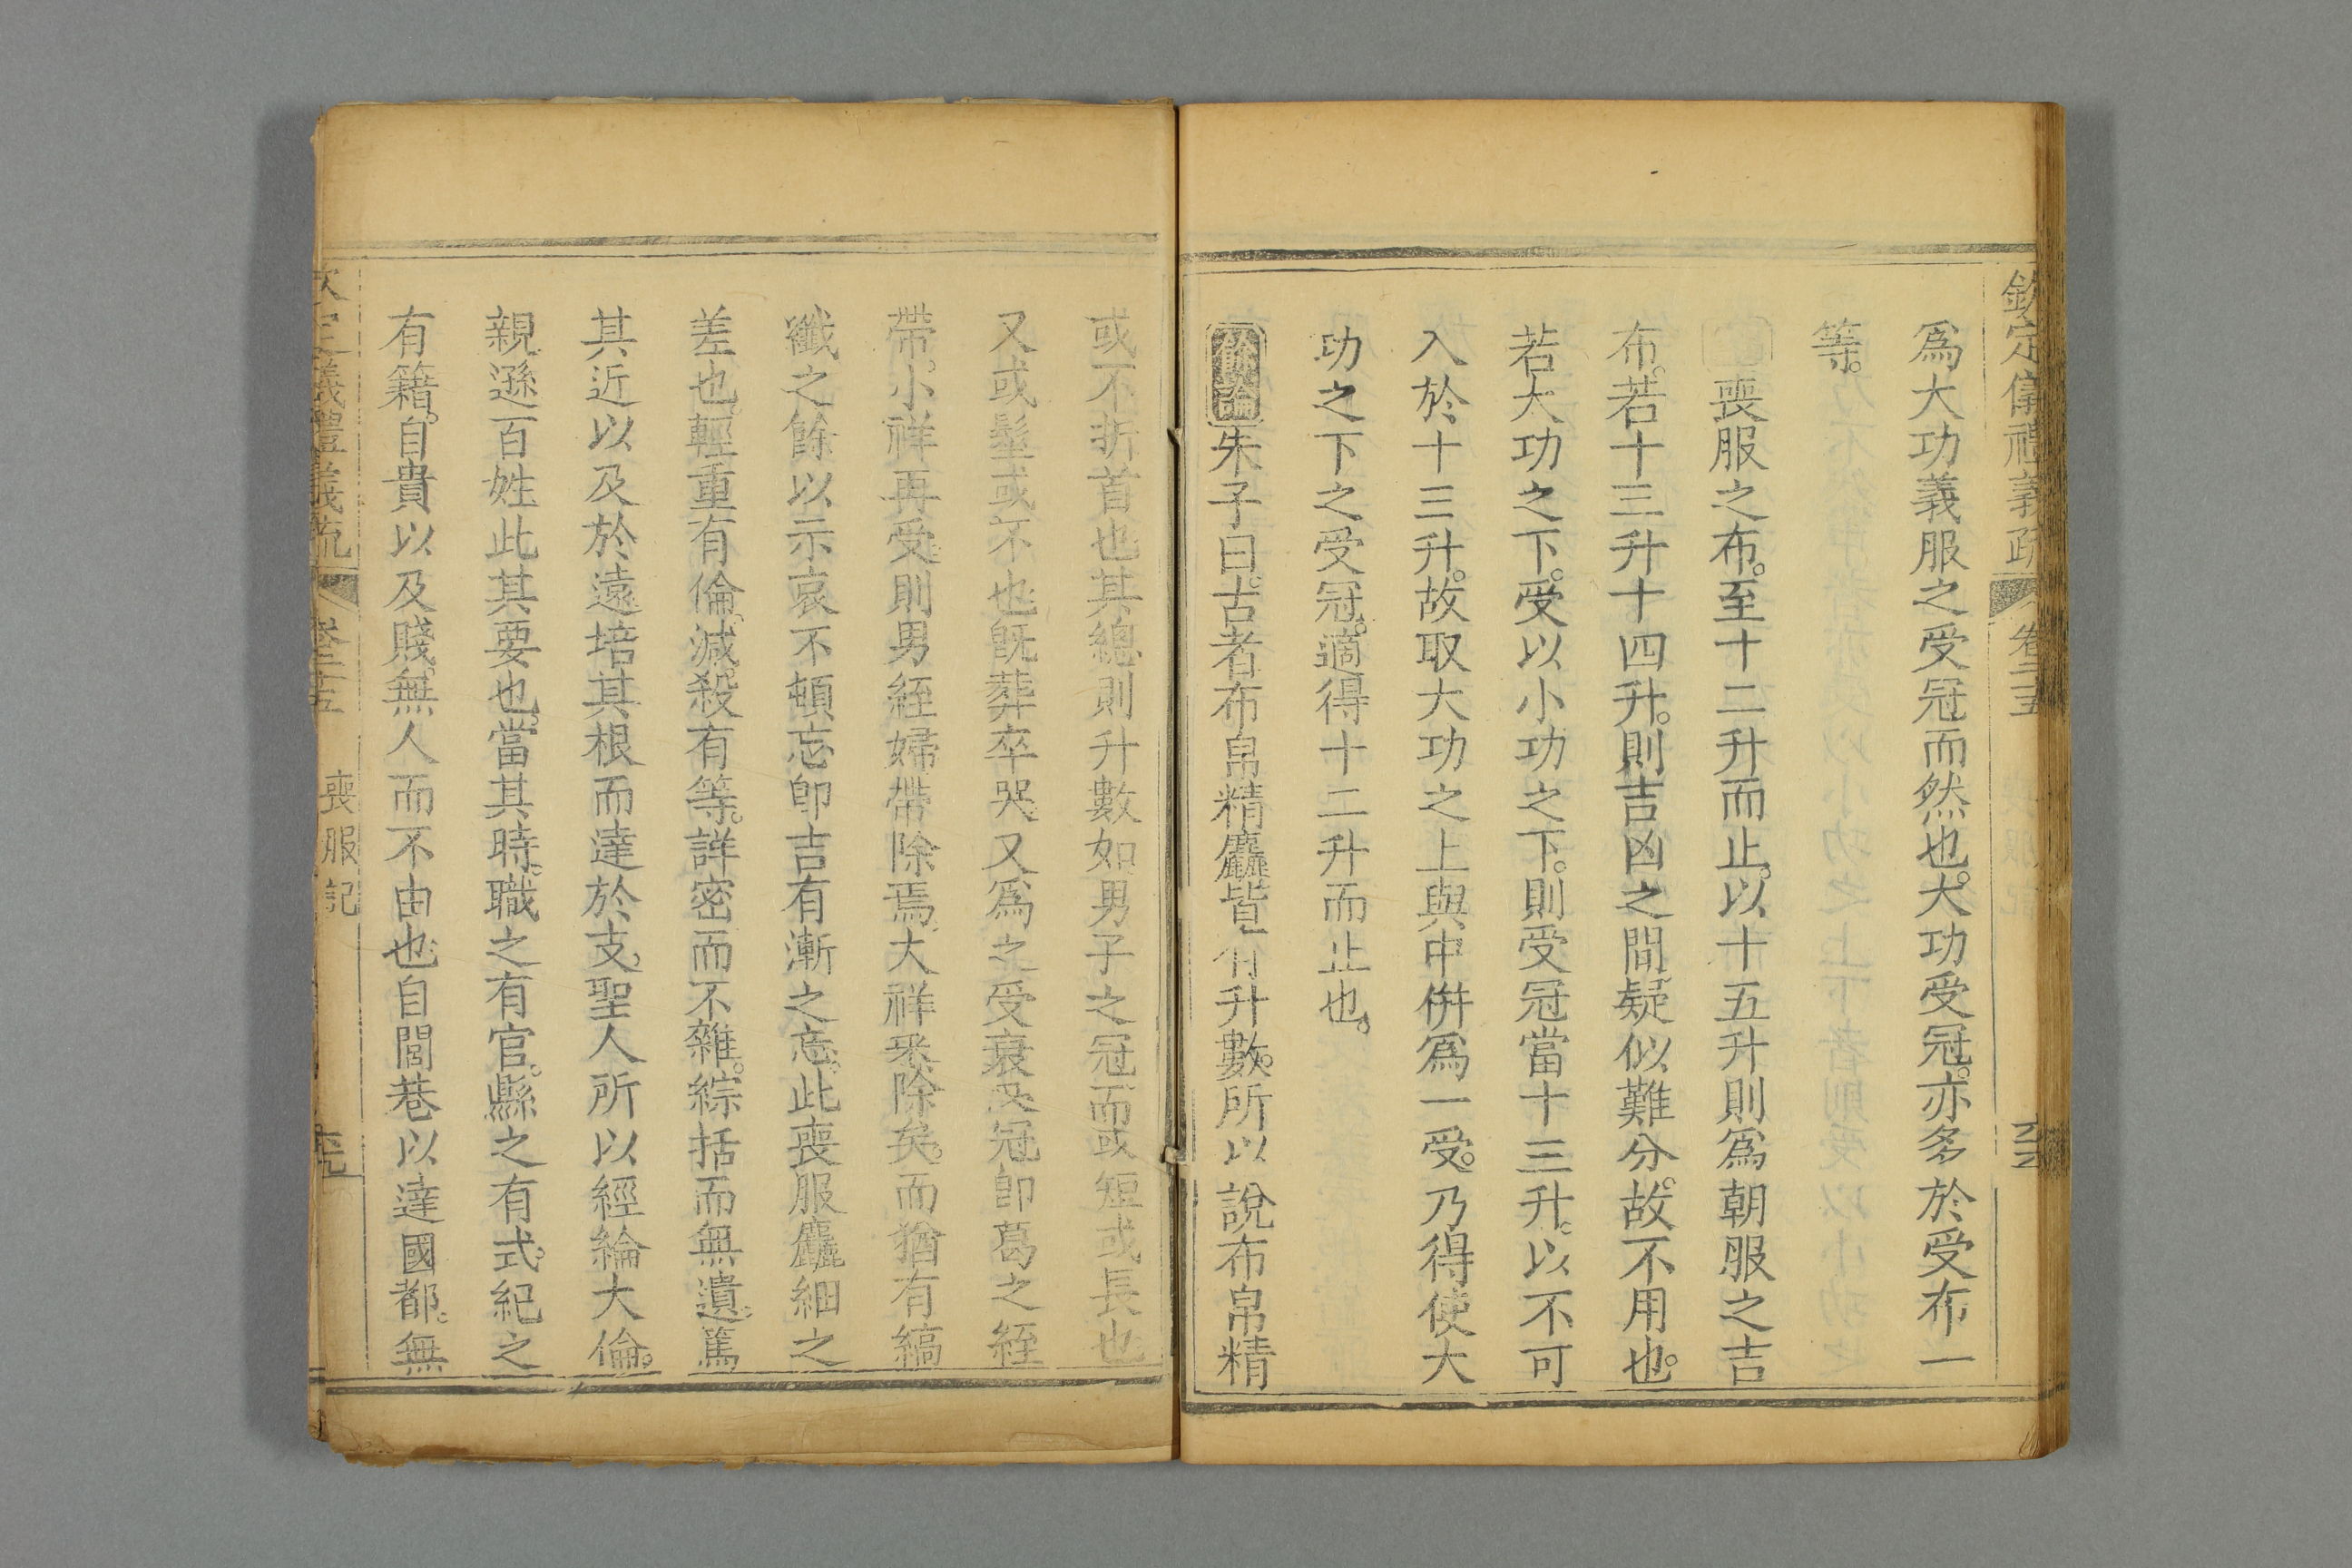 欽定儀禮義疏 卷二十五
爲大功義服之受冠而然也。大功受冠。亦多於受布一
等。
喪服之布。至十二升而止。以十五升則爲朝服之吉
布。若十三升十四升。則吉凶之間。疑似難分。故不用也。
若大功之下。受以小功之下。則受冠當十三升。以不可
入於十三升。故取大功之上與中併爲一受。乃得使大
功之下之受冠。適得十二升而止也。
餘論朱子曰。古者布帛精麤皆有升數。所以說布帛精
或不折首也其總則升數如男子之冠而或短或長也
又或髽或不也旣葬卒哭又爲之受衰受冠卽葛之絰
帶。小祥再受則男絰婦帶除焉。大祥悉除矣。而猶有縞
纖之餘以示哀不頓忘卽吉有漸之忘。此喪服麤細之
差也。輕重有倫。減殺有等。詳密而不雜。綜括而無遺。篤
其近以及於遠培其根而達於支。聖人所以經綸大倫。
親遜百姓此其要也。當其時。職之有官。縣之有式。紀之
有籍。自貴以及賤。無人而不由也。自閭巷以達國都。無
欽定儀禮義疏 卷二十五 喪服記